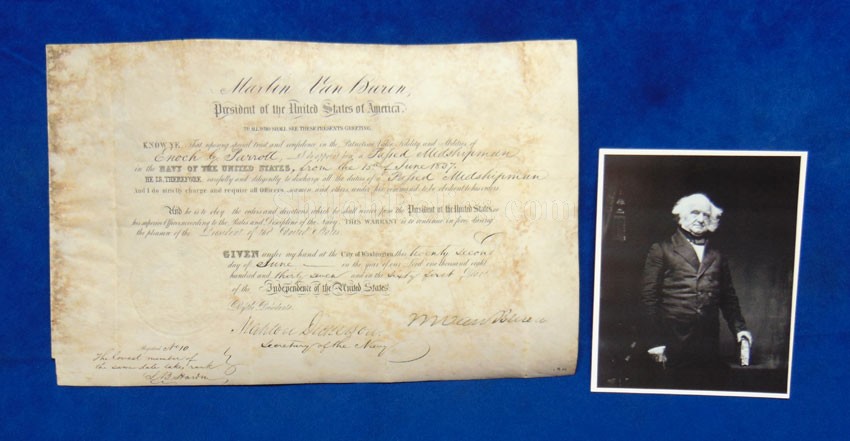 Martin Van Buren,
President of the United States of America.
TO ALL WHO SHALL SEE THESE PRESENTS GREETING.
KNOW YE, That reposing special trust and confidence in the Patriotism, Valor, Fidelity and Abilities of
Enoch G. Parrott, I do appoint him a Passed Midshipman
in the NAVY OF THE UNITED STATES, from the of June 1837.
HE IS, THEREFORE, carefully and diligently to discharge all the duties of a Passed Midshipman
And I do strictly charge and require all Officers, seamen, and others, under his command, to be obedient to his orders
And he is to obey the orders and directions which he shall receive from the President of the United States
his superior Officers, according to the Rules and Discipline of the Navy. THIS WARRANT is to continue in force during
the pleasure of the President of the United States
GIVEN under my hand at the City of Washington, this twenty second
day of June in the year of our Lord one thousand eight
hundred and thirty seven and in the sixty first year
of the Independence of the United States
By the President
Mahlon Dickerson M Van Buren
Secretary of the Navy
Registered No 10
The lowest number of
the same date takes rank